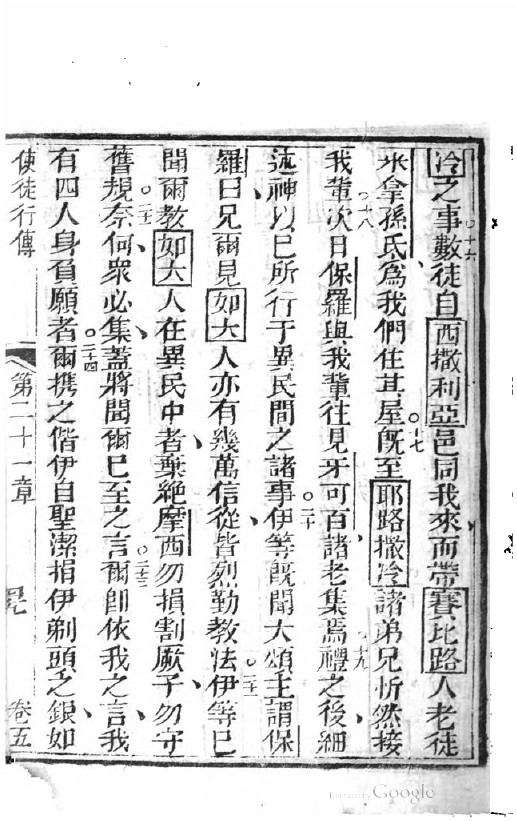 冷之事○十六數徒自西撒利亞邑同我來而帶賽比路人老徒
米拿孫氏○爲我們住其屋○十七旣至耶路撒冷諸弟兄忻然接
我輩○十八次日保羅與我輩往見牙可百諸老集焉○十九禮之後細
述神以己所行于異民間之諸事○二十伊等旣聞大頌主謂保
羅曰兄爾見如大人亦有幾萬信從皆烈勤教法○二一伊等已
聞爾教如大人在異民中者棄絶摩西勿損割厥子勿守
舊規○二二奈何衆必集蓋將聞爾已至之言○二三爾卽依我之言我
有四人身負願者○二十四爾携之偕伊自聖潔捐伊剃頭之銀如
使徒行傳 第二十一章 卷五
Google